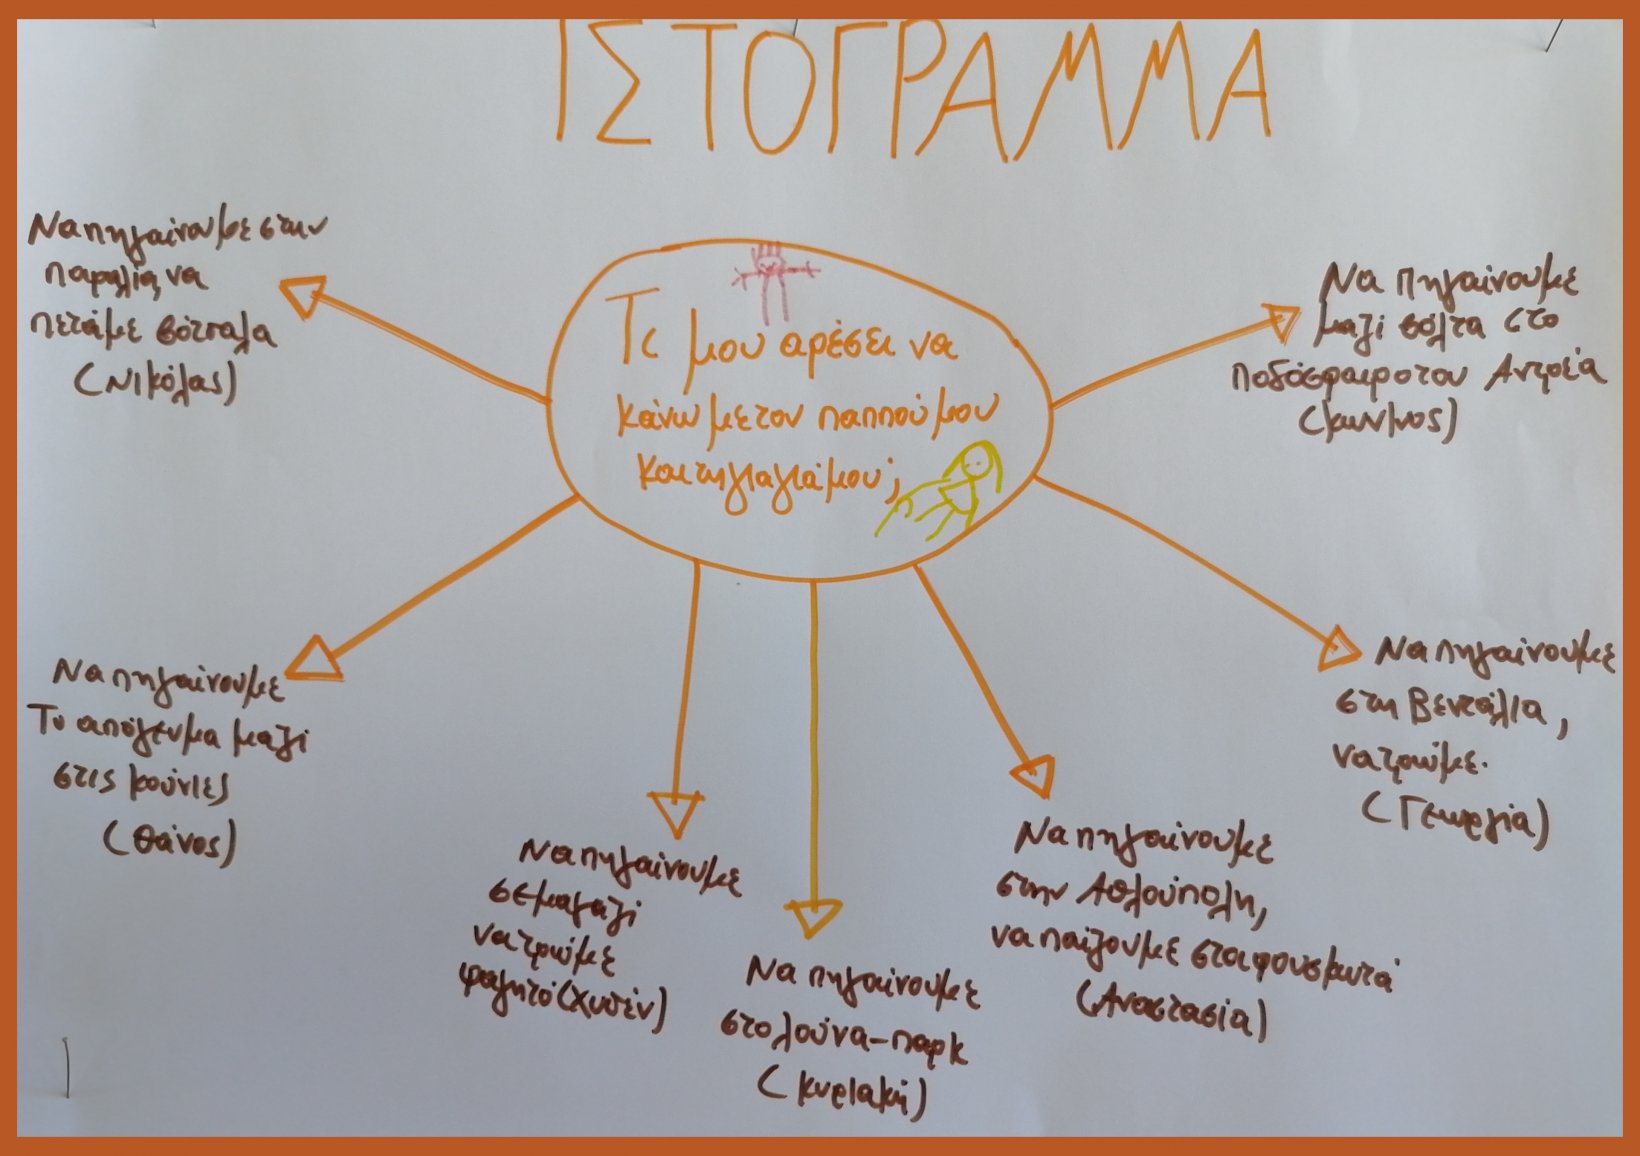 ΙΣΤΟΓΡΑΜΜΑ
Τι μου αρέσει να
κάνω με τον παππού μου
και τη γιαγιά μου;
Να πηγαίνουμε στην
παραλία, να
πετάμε βότσαλα
(Νικόλας)
Να πηγαίνουμε
μαζί βόλτα στο
ποδόσφαιρο του Αντρέα
Να πηγαίνουμε
το απόγευμα μαζί
στις κούνιες
(Θάνος)
Να πηγαίνουμε
στη Βεντάλια,
να τρώμε.
(Γεωργία)
Να πηγαίνουμε
σε μαγαζί
να τρώμε
φαγητό (Χυσέν)
Να πηγαίνουμε
στο λούνα-παρκ
(Κυριακή)
Να πηγαίνουμε
στην Αλλούπολη,
να παίζουμε στα φουσκωτά
(Αναστασία)